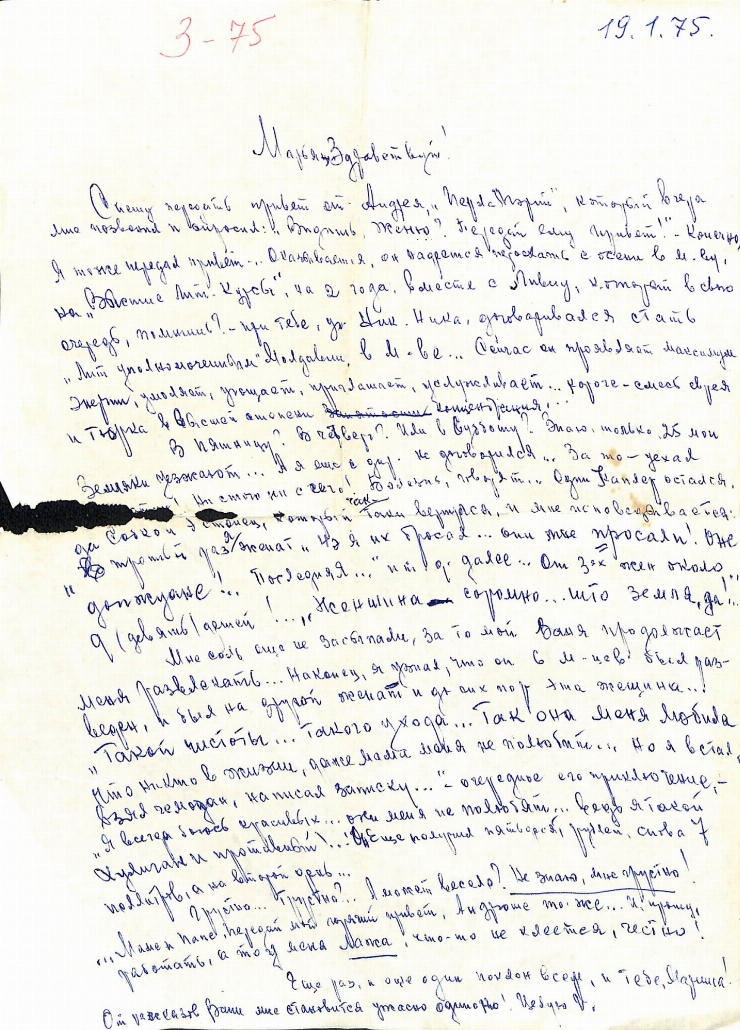 3-75
19.1.75.
Марья, Здравствуй!
Спешу передать привет от Андрея, и "Пер-Порт", который вчера
мне позвонил и спросил: "Видишь, Женю? Передай ему привет!" - Конечно,
Я тоже передал привет... Оказывается, он надеется поехать с осени в М-ву,
на "Высшие Лит. Курсы", на 2 года, вместе с Ливиу, который в свою
очередь, помнишь? - при тебе, до Ник. Ника, договаривался стать
"Лит уполномоченным" Молдавии, в М-ве... Сейчас он проявляет максимум
энергии, умоляет, угощает, приглашает, услуживает... короче - смесь еврея
и тюрка в высшей степени концентрация...
В пятницу? В четверг? Или в субботу? Знаю, только 25 мои
земляки уезжают... А я еще с дир. не договорился... За то - уехал
Ни с того ни с сего! Болезнь, говорят... Один Каплер остался,
да Собкой эстонец, который так таки вернулся, и мне исповедывается:
"В третий раз я женат", "Не я их бросал... они мне бросали! Оне
" последняя..." и т. д. далее... От 3х жен около
9 (девять) детей!... "Женщина - соромно... што земля, да!..
Мне соль еще не засыпали, за то мой Ваня продолжает
меня развлекать... Наконец, я узнал, что он 6 м-цев был раз-
веден, и был на другой женат и до сих пор эта женщина...
"Такой чистоты... Такого ухода... Так она меня любила
что никто в жизни, даже мама меня не полюбит... Но я встал,
взял чемодан, написал записку..." - очередное его приключение,-
"Я всегда боюсь красивых... они меня не полюбят... Ведь я такой
хулиган и противный"...! Еще получил пятьдесят, рублей, снова 7
поллитров, а на второй день...
Грустно... Грустно?.. А может весело? Не знаю, мне грустно!
... Маме и Папе передай мой горячий привет, Андрюше то-же... Я прошу,
работать, а тогда меня Лажа, что-то не клеется, честно!
Еще раз, и еще один поклон всем, и тебе, Марья!
От рассказов Вани мне становится ужасно одиноко! Целую